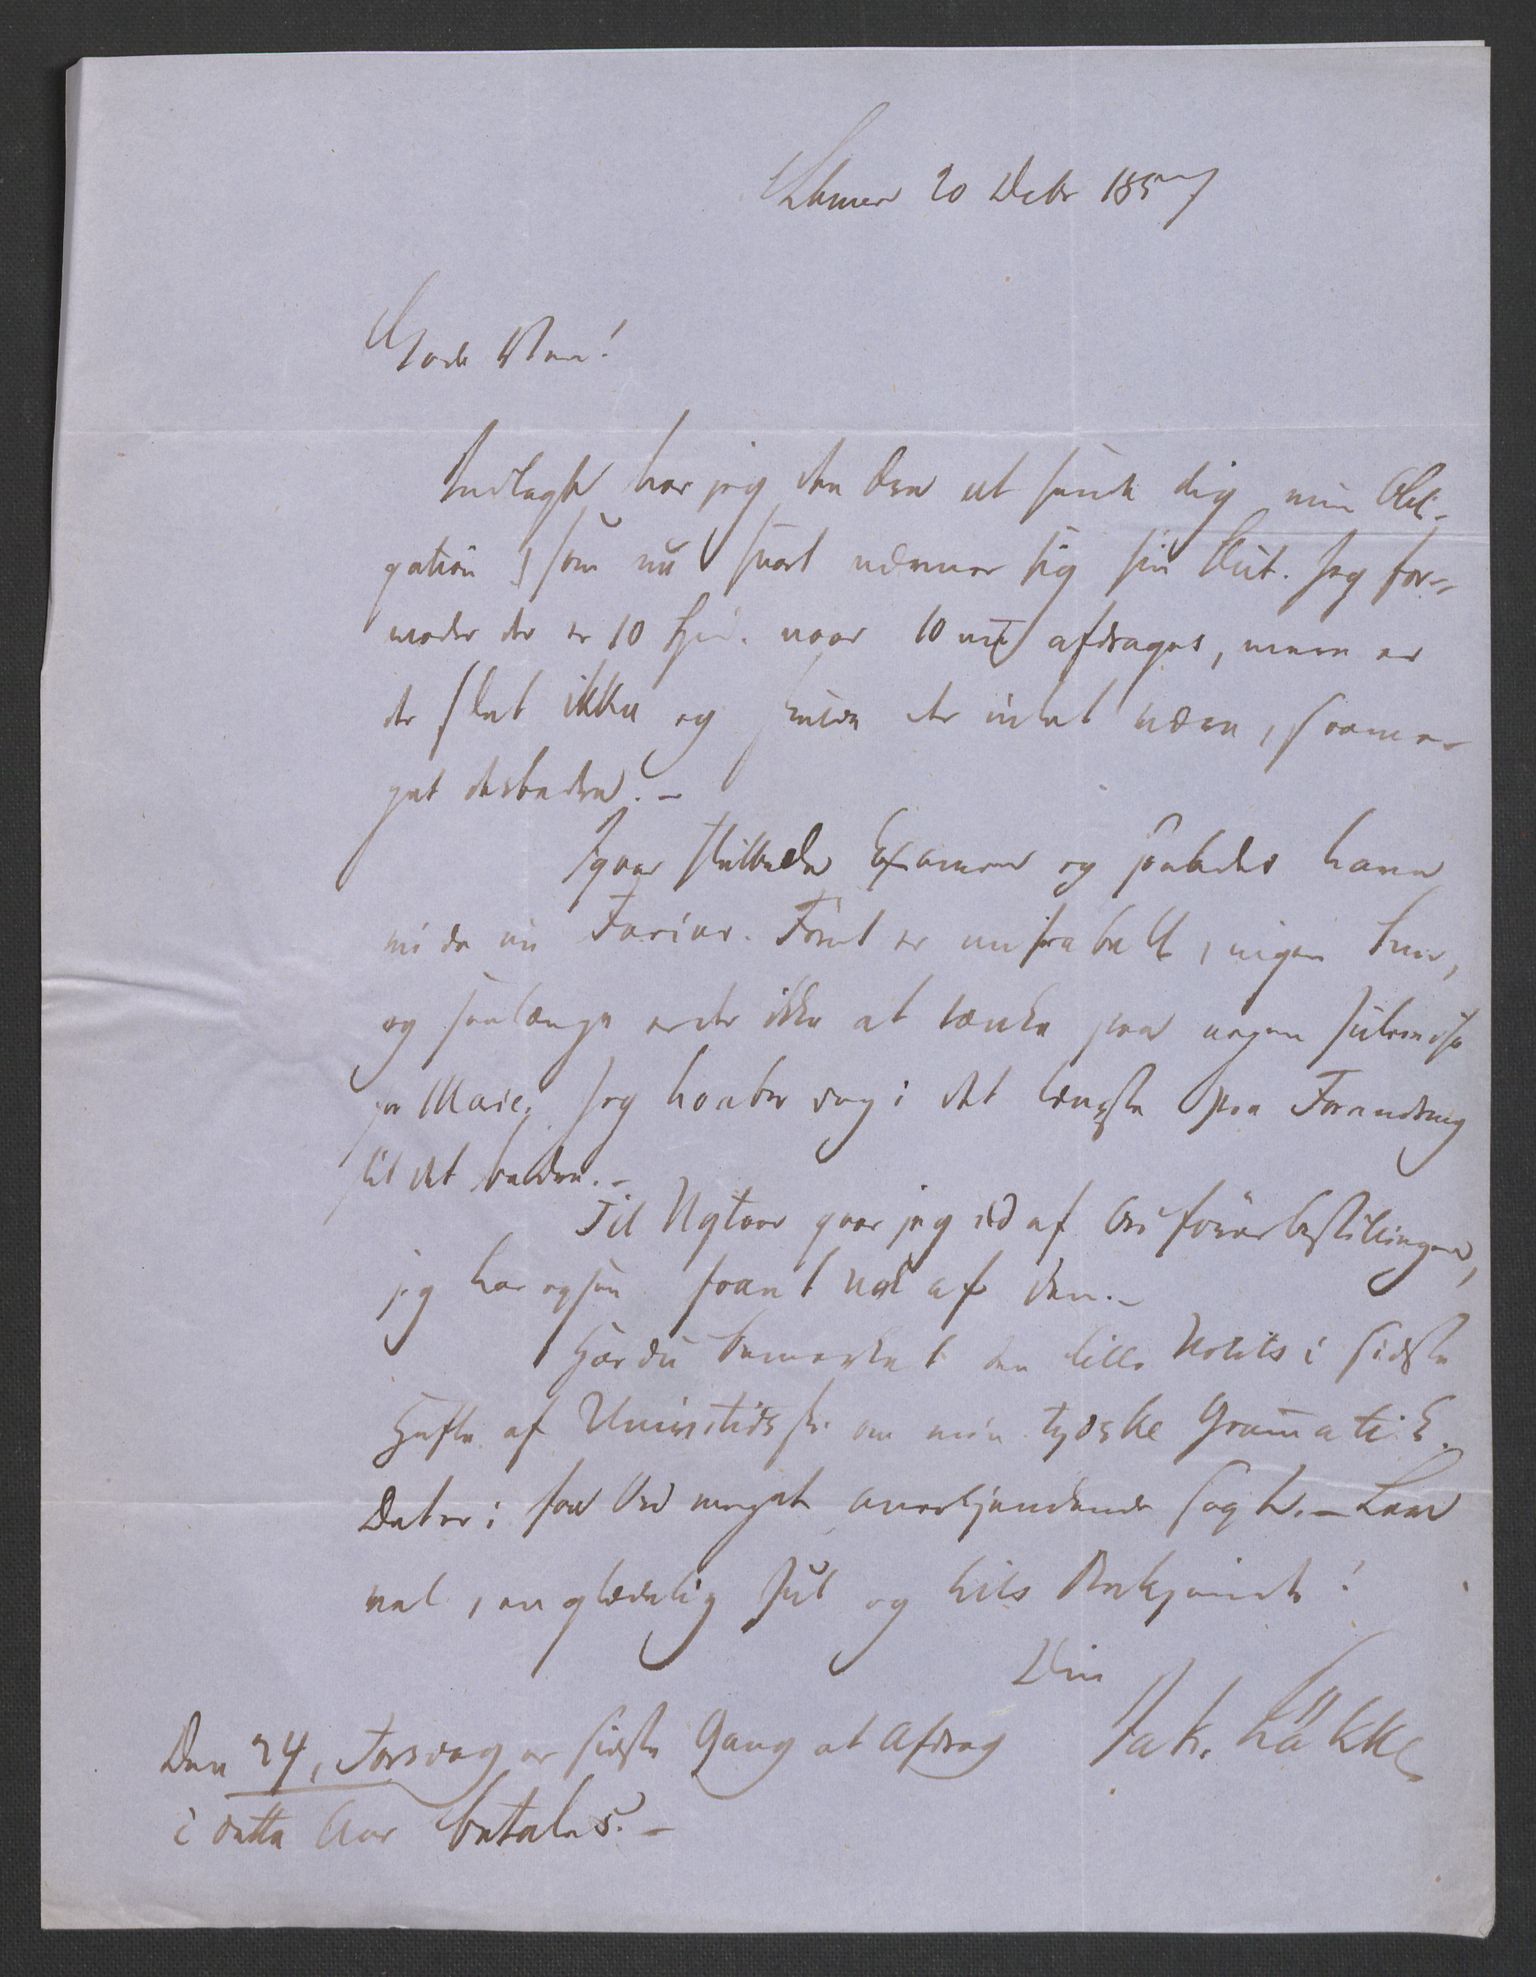 Hamar 20 Decbr 1857
Gode Ven!
Indlagt har jeg den Ære at sende dig min Obli-
gation, som nu snart nærmer sig sin Slut. Jeg for-
moder der er 10 Spd. naar 10 afdrages, men er
der slet ikke og inden der intet være, saa meget
get desbedre. –
Igaar sluttede Examen og saaledes have
vi da nu Ferier. Føret er miserabelt, ingen Snee,
og saalænge er der ikke at tænke paa nogen Julereise
for Marie. Jeg haaber dog i det længste paa Forandring
til det bedre. –
Til Nytaar gaar jeg ud af bestillingen,
jeg har ogsaa faaet nok af den. –
Har du bemærket den lille Notits i sidste
Hefte af Univ. tidsskr. om min tydske Grammatik.
Det er i faa Ord meget anerkjendende sagt. – Lev
vel, en glædelig Jul og hils Bekjendte!
Din
Jak. Løkke
Den 24, Torsdag er sidste Gang at Afdrag
i dette Aar betales. –